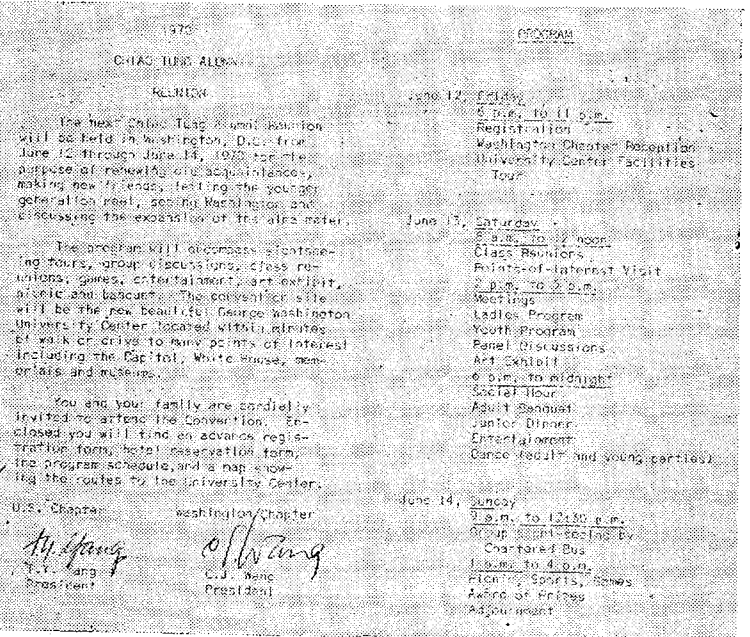 1970
CHIAO TUNG ALUMNI
REUNION
The next Chiao Tung Alumni Reunion
will be held in Washington, D.C. from
June 12 through June 14, 1970 for the
purpose of renewing old acquaintances,
making new friends, letting the younger
generation meet, seeing Washington and
discussing the expansion of the alma mater.
The program will encompass sightsee-
ing tours, group discussions, class re-
unions, games, entertainment, art exhibit,
picnic and banquet. The convention site
will be the new beautiful George Washington
University Center located within minutes
of walk or drive to many points of interest
including the Capitol, White House, mem-
orials and museums.
You and your family are cordially
invited to attend the Convention. En-
closed you will find an advance regis-
tration form, hotel reservation form,
the program schedule, and a map show-
ing the routes to the University Center.
U.S. Chapter
Washington Chapter
President
C.J. Wang
President
PROGRAM
June 12, Friday
6 p.m. to 11 p.m.
Registration
Washington Chapter Reception
University Center Facilities
Tour
June 13, Saturday
8 a.m. to 12 noon
Class Reunions
Points-of-Interest Visit
2 p.m. to 5 p.m.
Meetings
Ladies Program
Youth Program
Panel Discussions
Art Exhibit
6 p.m. to midnight
Social Hour
Adult Banquet
Junior Dinner
Entertainment
Dance (adult and young parties)
June 14, Sunday
9 a.m. to 12:30 p.m.
Group sight-seeing by
Chartered Bus
1 p.m. to 4 p.m.
Picnic, Sports, Games
Award of Prizes
Adjournment